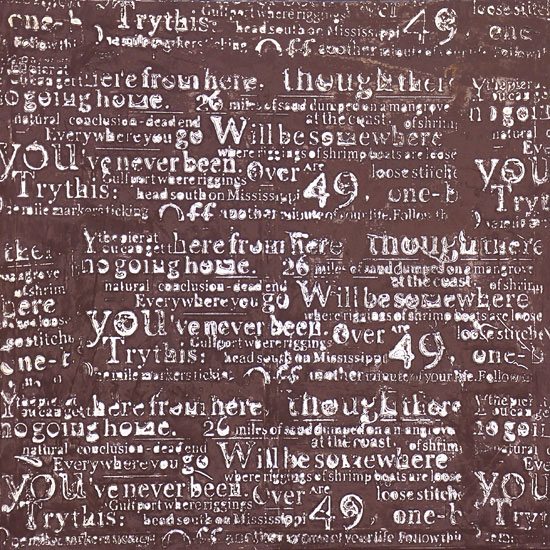 one-b Trythis: Gulfport where riggings head south on Mississippi 49, loose stitch one-
Follow thi mile markers ticking Off another minute of your life. Followth
You can get there from here, though there
no going home. 26 miles of sand dumped on a mangrove no goi
natural conclusion - dead end at the coast. of shrim natural
Everywhere you go Will be somewhere Eve
where riggings of shrimp boats are loose
you've never been. Over loose stitche you
Trythis: Gulfport where riggings head south on Mississippi 49, one-b Tryt
mile markers ticking Off another minute of your life. Follow th
ther You can get there from here, though there
no going home. 26 miles of sand dumped on a mangrove
of shrim natural conclusion - dead end at the coast. of shrim
here Everywhere you go Will be somewhere
where riggings of shrimp boats are loose
se stitche you've never been. Over loose stitche
ne-t Trythis: Gulfport where riggings head south on Mississippi 49, one-
mile markers ticking Off another minute of your life. Follow
You can get there from here, though there
no going home. 26 miles of sand dumped on a mangrove no goi
natural conclusion - dead end at the coast. of shrim natural
Everywhere you go Will be somewhere Eve
where riggings of shrimp boats are loose
you've never been. Over loose stitche you
Trythis: Gulfport where riggings head south on Mississippi 49, one-b Tryt
mile markers ticking Off another minute of your life. Follow th